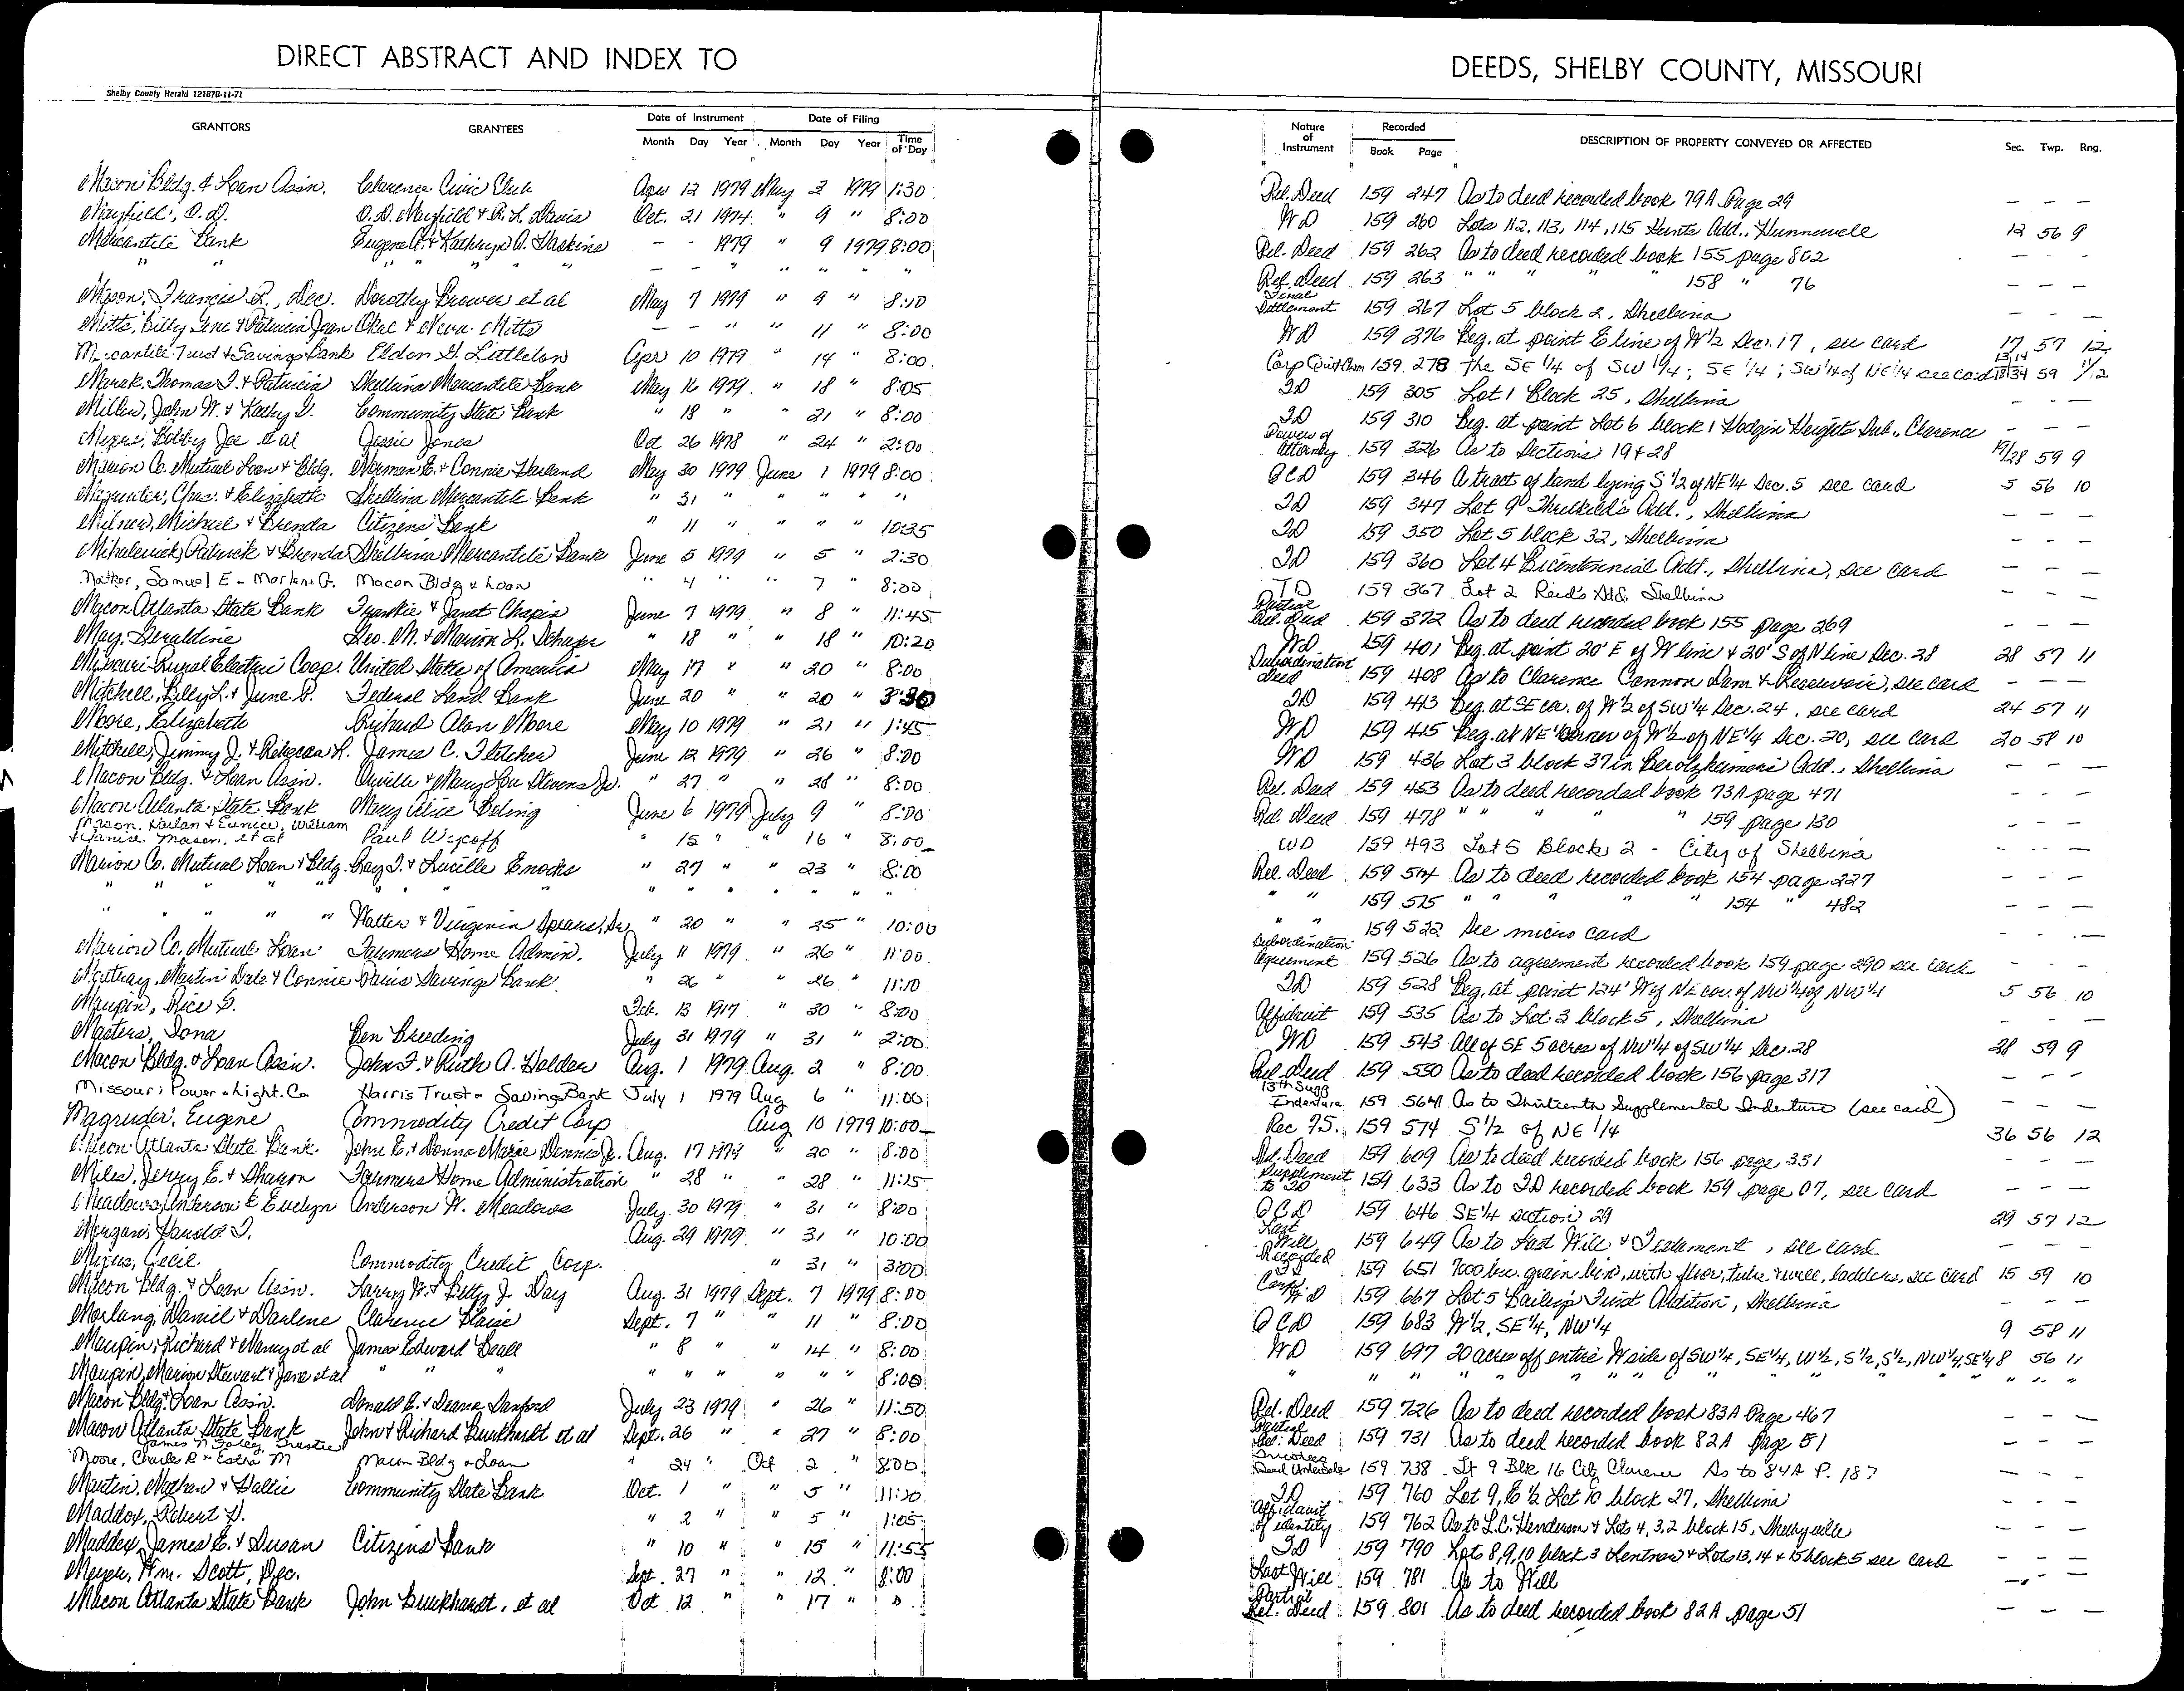 DIRECT ABSTRACT AND INDEX TO
Shelby County Herald 121878-11-71
GRANTORS GRANTEES Date of Instrument Date of Filing
Month Day Year Month Day Year Time of Day
Macon Bldg. & Loan Assn. Clarence Civic Club Apr 12 1979 May 2 1979 1:30
Mayfield, O.D. O.D. Mayfield & R.L. Davis Oct. 21 1974 " 9 " 8:00
Mercantile Bank Eugene A. & Kathryn A. Haskins - - 1979 " 9 1979 8:00
" " " " " " - - " " " " "
Mason, Francis R., Dec. Dorothy Brewer et al May 7 1979 " 9 " 8:10
Mitts, Billy Gene & Patricia Jean Okal & Neva Mitts - - " " 11 " 8:00
Mercantile Trust & Savings Bank Eldon G. Littleton Apr 10 1979 " 14 " 8:00
Thomas J. & Patricia Shelbina Mercantile Bank May 16 1979 " 18 " 8:05
Miller, John W. & Kathy D. Community State Bank " 18 " " 21 " 8:00
Bobby Joe et al Jessie Jones Oct 26 1978 " 24 " 2:00
Marion Co. Mutual Loan & Bldg. Norman E. & Connie Harland May 30 1979 June 1 1979 8:00
Chas. & Elizabeth Shelbina Mercantile Bank " 31 " " " " "
Milner, Michael & Brenda Citizens Bank " 11 " " " " 10:35
Mihalevich, Patrick & Brenda Shelbina Mercantile Bank June 5 1979 " 5 " 2:30
Mather, Samuel E - Marlene G. Macon Bldg & Loan " 4 " " 7 " 8:00
Macon Atlanta State Bank Frankie & Janet Chapin June 7 1979 " 8 " 11:45
May, Geraldine Geo. M. & Marion L. Schaper " 18 " " 18 " 10:20
Missouri Rural Electric Coop. United States of America May 17 " " 20 " 8:00
Mitchell, Billy L. & June S. Federal Land Bank June 20 " " 20 " 3:30
Moore, Elizabeth Richard Alan Moore May 10 1979 " 21 " 1:45
Mitchell, Jimmy J. & Rebecca R. James C. Fletcher June 12 1979 " 26 " 8:00
Macon Bldg. & Loan Assn. Orville & Mary Lou Stevens Jr. " 27 " " 28 " 8:00
Macon Atlanta State Bank Mary Alice Beling June 6 1979 July 9 " 8:00
Mason, Harlan & Eunice, William
& Janice Mason, et al Paul Wycoff " 15 " " 16 " 8:00
Marion Co. Mutual Loan & Bldg. Ray T. & Lucille Enochs " 27 " " 23 " 8:00
" " " " " " " " " " " " "
" " " " " Walter & Virginia Spears, Sr. " 20 " " 25 " 10:00
Marion Co. Mutual Loan Farmers Home Admin. July 11 1979 " 26 " 11:00
Martin Dale & Connie Paris Savings Bank " 26 " " 26 " 11:10
Maupin, Rice G. Feb. 13 1917 " 30 " 8:00
Masters, Iona Ben Breeding July 31 1979 " 31 " 2:00
Macon Bldg. & Loan Assn. John F. & Ruth A. Holder Aug. 1 1979 Aug. 2 " 8:00
Missouri Power & Light Co Harris Trust & Savings Bank July 1 1979 Aug 6 " 11:00
Magruder, Eugene Commodity Credit Corp Aug 10 1979 10:00
Macon Atlanta State Bank John E. & Donna Marie Dennis Jr. Aug. 17 1979 " 20 " 8:00
Miles, Jerry E. & Sharon Farmers Home Administration " 28 " " 28 " 11:15
Meadows, Anderson & Evelyn Anderson W. Meadows July 30 1979 " 31 " 8:00
Morgan, Harold T. Aug. 29 1979 " 31 " 10:00
Cecil Commodity Credit Corp. " 31 " 3:00
Macon Bldg. & Loan Assn. Larry W. & Betty J. Day Aug. 31 1979 Sept. 7 1979 8:00
Morlang, Daniel & Darlene Clarence Blaise Sept. 7 " " 11 " 8:00
Maupin, Richard & Nancy et al James Edward Beall " 8 " " 14 " 8:00
Maupin, Marion Stewart & Jane et al " " " " " " " " 8:00
Macon Bldg. & Loan Assn. Donald E. & Deanna Sanford July 23 1979 " 26 " 11:50
Macon Atlanta State Bank John & Richard Burkhardt et al Sept. 26 " " 27 " 8:00
James N. Foley, Trustee
Moore, Charles R & Edra M Macon Bldg & Loan " 24 " Oct 2 " 8:00
Martin, Nathan & Hallie Community State Bank Oct. 1 " " 5 " 11:30
Maddox, Robert D. " 2 " " 5 " 1:05
Maddex, James E. & Susan Citizens Bank " 10 " " 15 " 11:55
Meyer, Wm. Scott, Dec. Sept. 27 " " 12 " 8:00
Macon Atlanta State Bank John Burkhardt, et al Oct 12 " " 17 " "
DEEDS, SHELBY COUNTY, MISSOURI
Nature of Instrument Recorded Book Page DESCRIPTION OF PROPERTY CONVEYED OR AFFECTED Sec. Twp. Rng.
Rel. Deed 159 247 As to deed recorded book 79A Page 29 - - -
WD 159 260 Lots 112, 113, 114, 115 Hunts Add., Hunnewell 12 56 9
Rel. Deed 159 262 As to deed recorded book 155 page 802 - - -
Rel. Deed 159 263 " " " " " 158 " 76 - - -
Final Settlement 159 267 Lot 5 block 2, Shelbina - - -
WD 159 276 Beg. at point E line of W 1/2 Sec. 17, see card 17 57 12
Corp Quit Clm 159 278 The SE 1/4 of SW 1/4; SE 1/4; SW 1/4 of NE 1/4 see card 59 11/12
TD 159 305 Lot 1 Block 25, Shelbina - - -
TD 159 310 Beg. at point Lot 6 block 1 Hodgin Heights Sub., Clarence - - -
Power of Attorney 159 326 As to Sections 19 & 28 19/28 59 9
QCD 159 346 A tract of land lying S 1/2 of NE 1/4 Sec. 5 see card 5 56 10
TD 159 347 Lot 9 Threlkeld's Add., Shelbina - - -
TD 159 350 Lot 5 block 32, Shelbina - - -
TD 159 360 Lot 4 Bicentennial Add., Shelbina, see card - - -
TD 159 367 Lot 2 Reid's Add. Shelbina - - -
Partial Rel. Deed 159 372 As to deed recorded book 155 page 269 - - -
WD 159 401 Beg. at point 20' E of W line & 20' S of N line Sec. 28 28 57 11
Subordination Deed 159 408 As to Clarence Cannon Dam & Reservoir, see card - - -
TD 159 413 Beg. at SE cor. of W 1/2 of SW 1/4 Sec. 24, see card 24 57 11
WD 159 415 Beg. at NE corner of W 1/2 of NE 1/4 Sec. 20, see card 20 58 10
WD 159 436 Lot 3 block 37 in Berolzheimers Add., Shelbina - - -
Rel. Deed 159 453 As to deed recorded book 73A page 471 - - -
Rel. Deed 159 478 " " " " " 159 page 130 - - -
WD 159 493 Lot 5 Block 2 - City of Shelbina - - -
Rel. Deed 159 514 As to deed recorded book 154 page 227 - - -
" " 159 515 " " " " " 154 " 482 - - -
" " 159 522 See micro card - - -
Subordination Agreement 159 526 As to agreement recorded book 159 page 290 see card - - -
TD 159 528 Beg. at point 124' W of NE cor. of NW 1/4 of NW 1/4 5 56 10
Affidavit 159 535 As to Lot 3 block 5, Shelbina - - -
WD 159 543 All of SE 5 acres of NW 1/4 of SW 1/4 Sec. 28 28 59 9
Rel. Deed 159 550 As to deed recorded book 156 page 317 - - -
13th Supp Indenture 159 5641 As to Thirteenth Supplemental Indenture (see card) - - -
Rec 159 574 S 1/2 of NE 1/4 36 56 12
Rel. Deed 159 609 As to deed recorded book 156 page 331 - - -
Supplement to TD 159 633 As to TD recorded book 159 page 07, see card - - -
QCD 159 646 SE 1/4 section 29 29 57 12
Last Will 159 649 As to Last Will & Testament, see card - - -
Recorded 159 651 7000 bu. grain bin, with floor, tube & well, ladders, see card 15 59 10
Corp WD 159 667 Lot 5 Bailey's First Addition, Shelbina - - -
QCD 159 683 W 1/2, SE 1/4, NW 1/4 9 58 11
WD 159 697 20 acres off entire W side of SW 1/4, SE 1/4, W 1/2, S 1/2, S 1/2, NW 1/4, SE 1/4 8 56 11
" " " " " " " " " " " " " " "
Rel. Deed 159 726 As to deed recorded book 83A Page 467 - - -
Partial Rel. Deed 159 731 As to deed recorded book 82A page 51 - - -
Trustees Deed Under Sale 159 738 Lt 9 Blk 16 City Clarence As to 84A P. 187 - - -
TD 159 760 Lot 9, E 1/2 Lot 10 block 27, Shelbina - - -
Affidavit of identity 159 762 As to L.C. Henderson & Lots 4, 3, 2 block 15, Shelbyville - - -
TD 159 790 Lots 8, 9, 10 block 3 Lentner & Lots 13, 14 & 15 block 5 see card - - -
Last Will 159 781 As to Will - - -
Partial Rel. Deed 159 801 As to deed recorded book 82A page 51 - - -